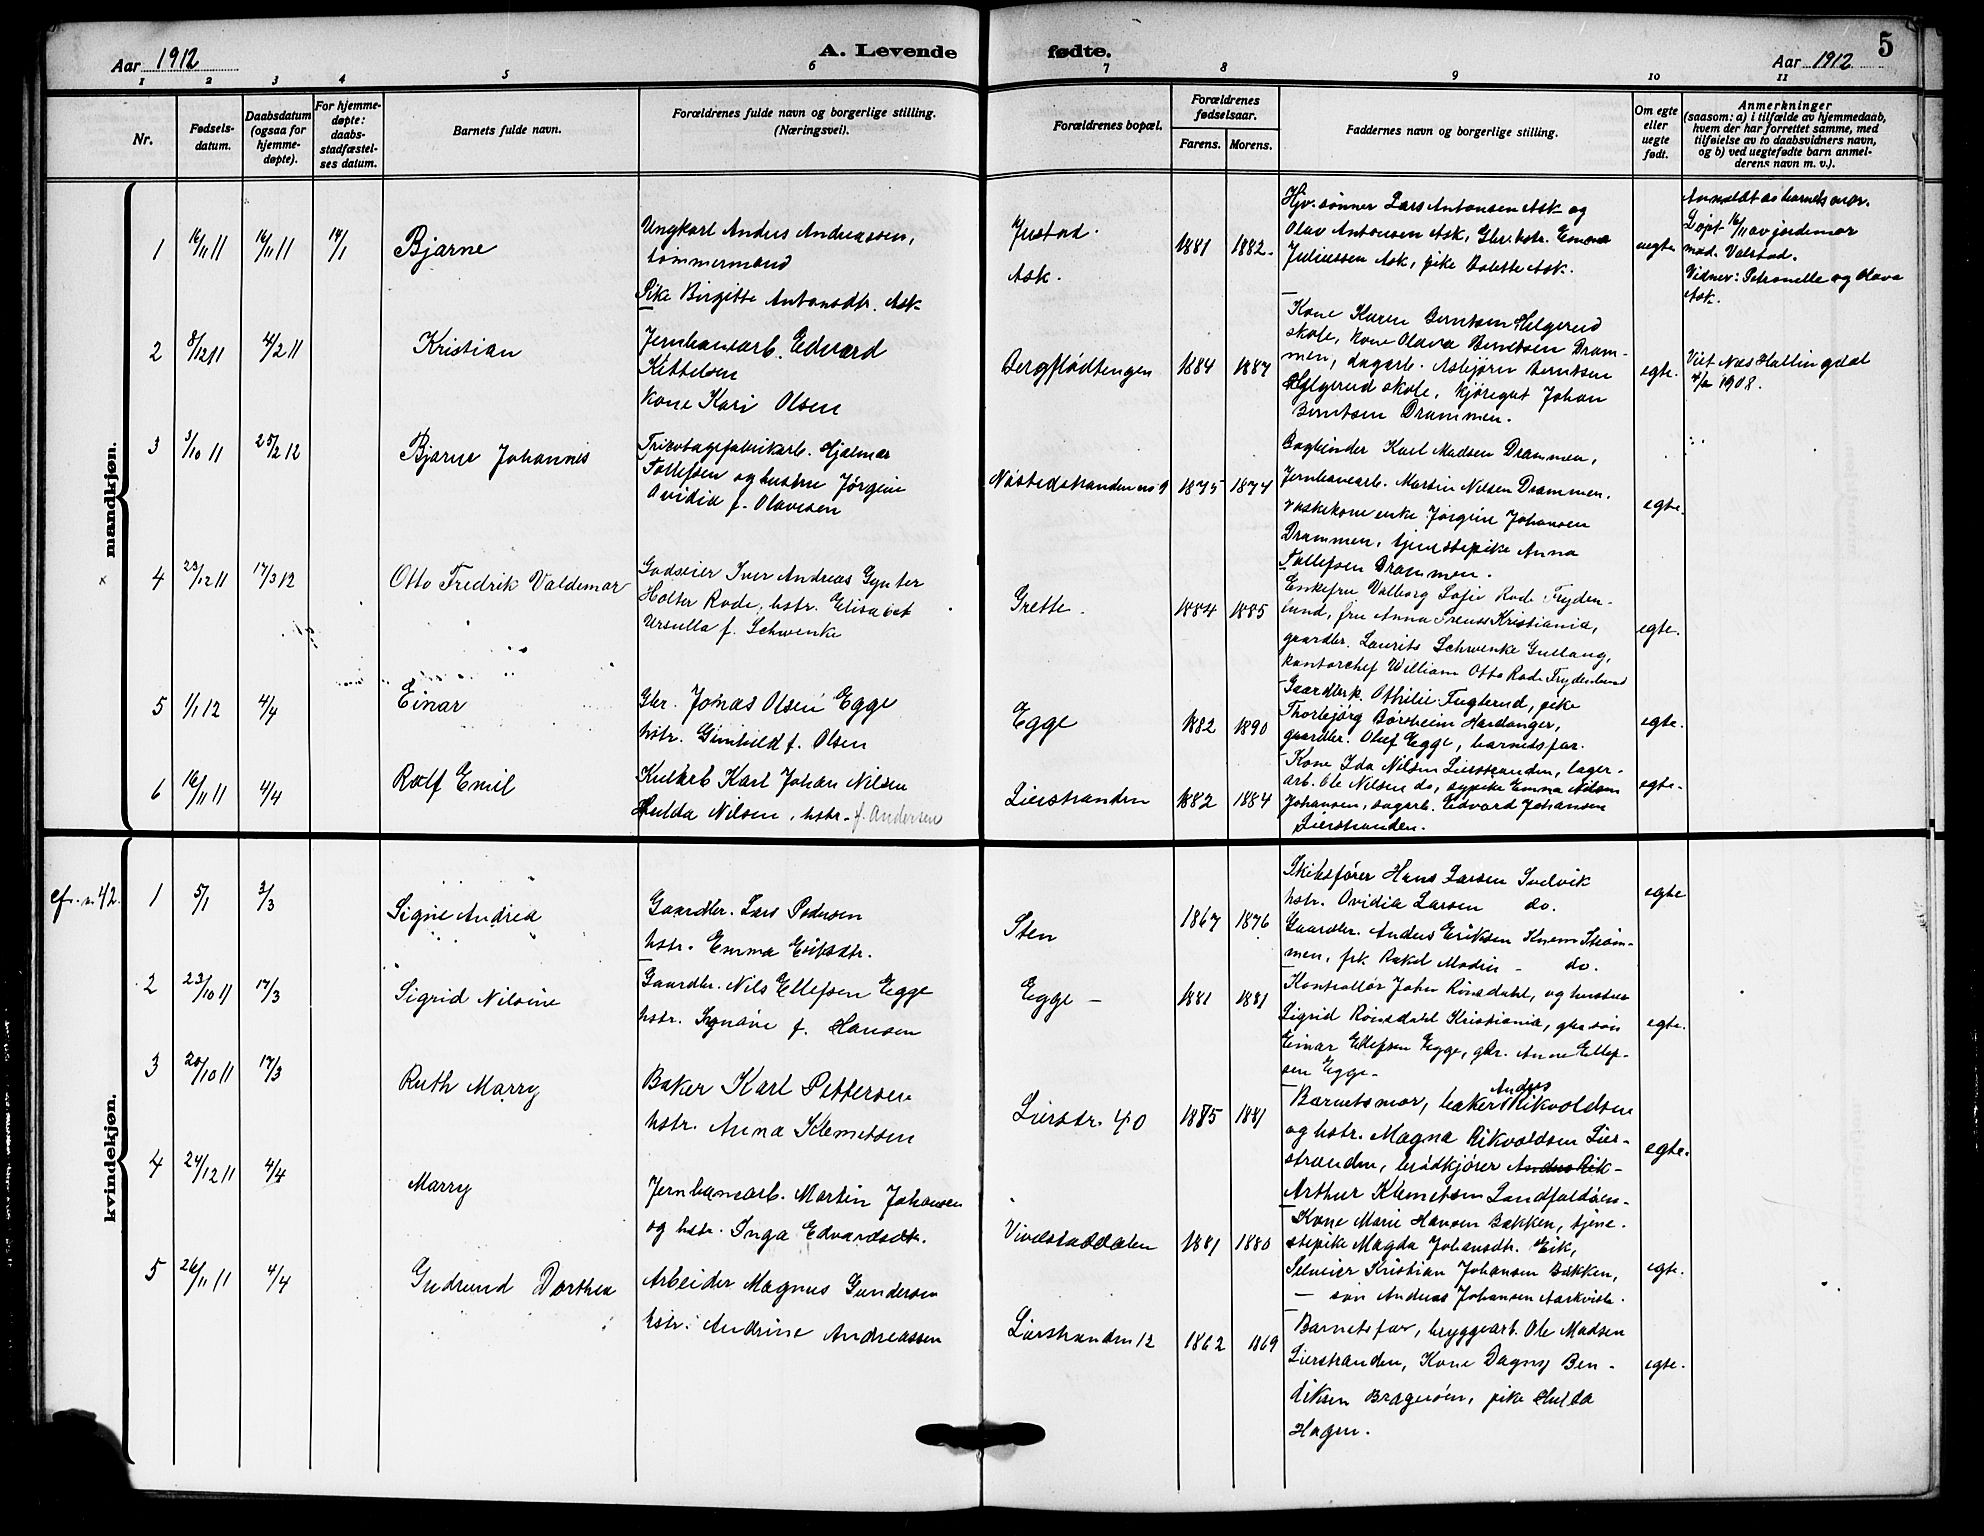 Aar 1912
A. Levende
fødte.
5
Aar 1912
1 2 3 4 5 6 7 8 9 10 11
Nr.
Fødsels-
datum.
Daabsdatum
(ogsaa for
hjemme-
døpte).
For hjemme-
døpte:
daabs-
stadfæstel-
ses datum.
Barnets fulde navn.
Forældrenes fulde navn og borgerlige stilling.
(Næringsvei).
Forældrenes bopæl.
Forældrenes
fødselsaar.
Farens. Morens.
Faddernes navn og borgerlige stilling.
Om egte
eller
uegte
født.
Anmerkninger
(saasom: a) i tilfælde av hjemmedaab,
hvem der har forrettet samme, med
tilføielse av to daabsvidners navn,
og b) ved uegtefødte barn anmel-
derens navn m. v.).
mandkjøn.
1 16/11 11 16/11 11 14/1 Bjarne
Ungkarl Anders Andreassen,
tømmermand
Pike Birgitte Antonsdtr. Ask
Justad.
Ask.
1881 1882
Hjv. sønner Lars Antonsen Ask og
Olav Antonsen Ask, Gbr. hstr. Emma
Juliussen Ask, pike Bolette Ask.
uegte
Anmeldt av barnets mor.
Døpt 16/11 av jordemor
mad. Valstad.
Vidner: Petronelle og Olava
Ask.
2 8/12 11 4/2 11 Kristian
Jernbanearb. Edvard
Kittelsen
Kone Kari Olsen
Bergflødtengen 1884 1887
Kone Karen Berntsen Helgerud
skole, Kone Olava Berntsen Dram-
men, dagarb. Asbjørn Berntsen
Helgerud skole, kjøregut Johan
Berntsen Drammen.
egte.
Viet Nes Hallingdal
1908.
3 3/10 11 25/2 12 Bjarne Johannes
Trikotagefabrikarb. Hjalmar
Tollefsen og hustru Jørgine
Ovidia f. Olavesen
Nøstedstranden no 9 1875 1874
Bogbinder Karl Madsen Drammen,
Jernbanearb. Martin Nilsen Drammen,
vaskekone enke Jørgine Johansen
Drammen, tjenstepike Anna
Tollefsen Drammen.
egte.
4 23/12 11 17/3 12 Otto Fredrik Valdemar
Godseier Iver Andreas Gynter
Holter Rode, hstr. Elisabet
Ursulla f. Schwenke
Grette 1884 1885
Enkefru Valborg Sofie Rode Fryden-
lund, fru Anna Kristiania,
gaardbr. Laurits Schwenke Gullaug,
kontorchef William Otto Rode Frydenlund
egte.
5 1/1 12 4/4 Einar
Gbr. Jonas Olsen Egge
hstr. Gunhild f. Olsen
Egge 1882 1890
Gaardbrk. Othilie Fuglerud, pike
Thorbjørg Børsheim Hardanger,
gaardbr. Oluf Egge, barnets far.
egte.
6 16/11 11 4/4 Rolf Emil
Kularb Karl Johan Nilsen
Hulda Nilsen, hstr. f. Andersen
Lierstranden 1882 1884
Kone Ida Nilsen Lierstranden, lager-
arb. Ole Nilsen do, sypike Emma Nilsen
Johansen, sagarb. Edvard Johansen
Lierstranden.
egte.
kvindekjøn.
cf. 42. 1 5/1 3/3 Signe Andrea
Gaardbr. Lars Pedersen
hstr. Emma Eriksdtr.
Sten 1867 1876
Skibsfører Hans Larsen Svelvik
hstr. Ovidia Larsen do.
Gaardbr. Anders Eriksen Knem Strøm-
men, frk Rakel Modin - do.
egte
2 23/10 11 17/3 Sigrid Nilsine
Gaardbr. Nils Ellefsen Egge
hstr. f. Hansen
Egge - 1881 1881
Kontrollør John Rønsdahl, og hustru
Sigrid Rønsdahl Kristiania, gbr. søn
Einar Ellefsen Egge, gbr. Anne Ellef-
sen Egge.
egte.
3 20/10 11 17/3 Ruth Marry
Baker Karl Pettersen
hstr. Anna Klemetsen
Lierstr. 40 1885 1881
Barnets mor, baker Anders Rikvoldsen
og hstr. Magna Rikvoldsen Lier-
stranden, brødkjører Anders Rik-
Arthur Klemetsen Landfaldøen
egte.
4 24/12 11 4/4 Marry
Jernbanearb. Martin Johansen
og hstr. Inga Edvardsdtr.
Vivelstaddalen 1881 1880
Kone Marie Hansen Bakken, tjene-
stepike Magda Johansdtr. Eik,
Selveier Kristian Johansen Bakken,
- søn Andreas Johansen Aarkvisla.
egte.
5 26/11 11 4/4 Gudrund Dorthea
Arbeider Magnus Gundersen
hstr. Andrine Andreassen
Lierstranden 12 1862 1869
Barnets far, bryggearb. Ole Madsen
Lierstranden, Kone Dagny Ben-
diksen Bragerøen, pike Hulda
Hagen.
egte.